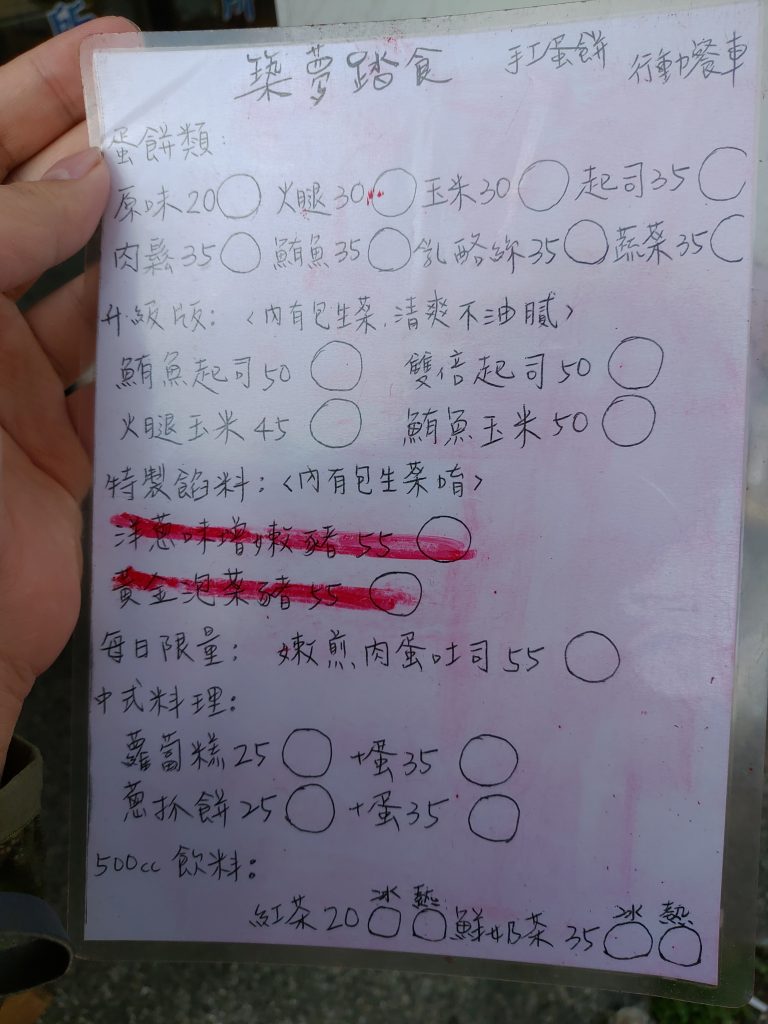 所 所
築夢踏食 手工蛋餅 行動餐車
蛋餅類:
原味20 火腿30 玉米30 起司35
肉鬆35 鮪魚35 乳酪絲35 蔬菜35
升級版:〈內有包生菜,清爽不油膩〉
鮪魚起司50 雙倍起司50
火腿玉米45 鮪魚玉米50
特製餡料:〈內有包生菜唷〉
洋蔥味增嫩豬55
黃金泡菜豬55
每日限量: 嫩煎肉蛋吐司55
中式料理:
蘿蔔糕25 +蛋35
蔥抓餅25 +蛋35
500cc飲料:
紅茶20 冰 熱 鮮奶茶35 冰 熱